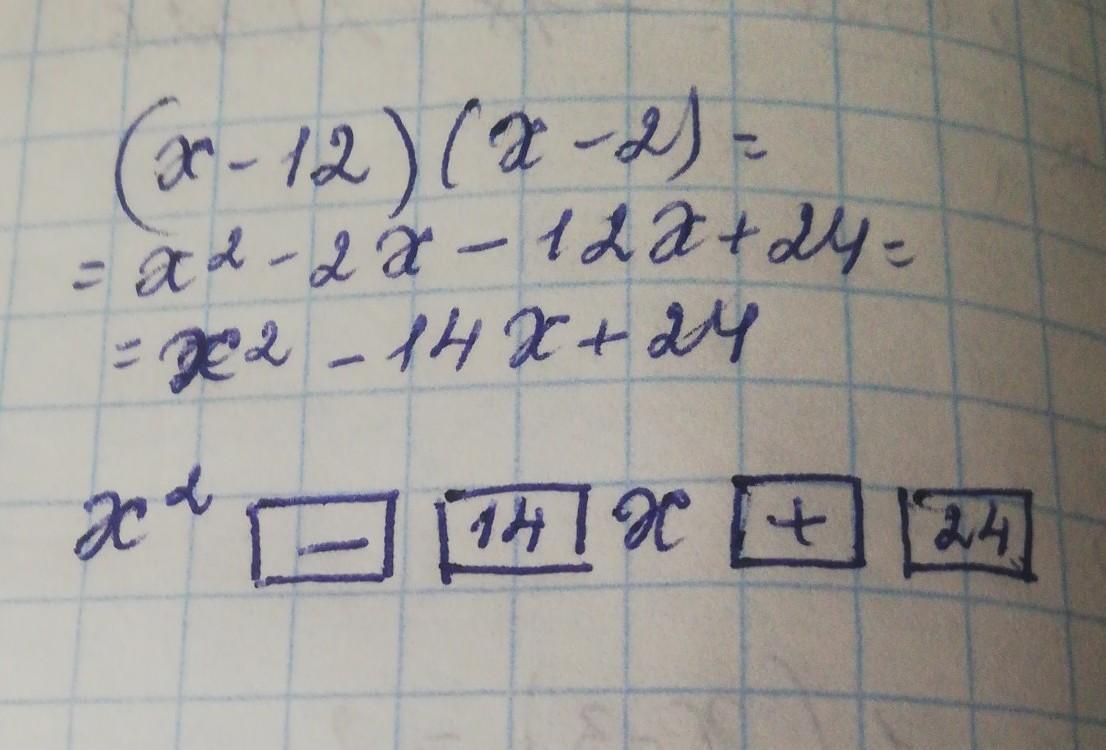 (x-12)(x-2)=
=x²-2x-12x+24=
=x²-14x+24
x² - 14 x + 24